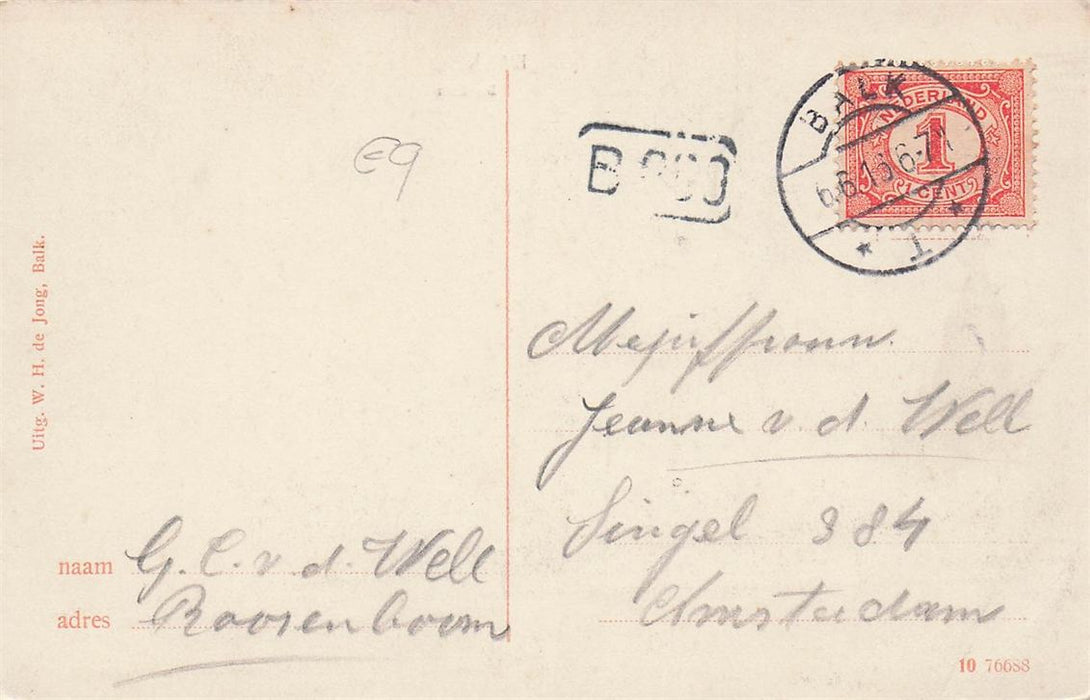 BALK
6.6.13 6-7
T
NEDERLAND
1
CENT
E9
Uitg. W. H. de Jong, Balk.
Mejuffrouw
Jeanne v. d. Well
Singel 384
Amsterdam
naam G. C. v. d. Well
adres Roosenboom
10 76688